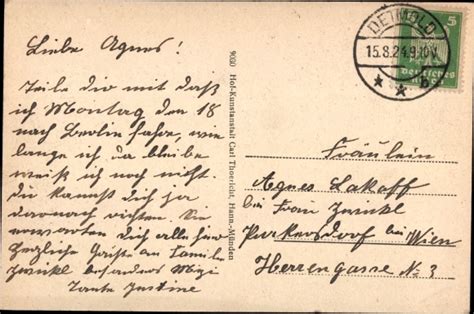 Liebe Agnes!
Teile dir mit daß
ich Montag den 18
nach Berlin fahre, wie
lange ich da bleibe
weiß ich noch nicht.
Du kannst dich ja
darnach richten. Sie
erwarten dich alle
herzliche Grüße an Familie
Zwinkl besonders Mizi
Tante Justine
9020 Hof-Kunstanstalt Carl Thoericht, Hann.-Münden
DETMOLD
15.8.24.9-10V.
* * b
5
Deutsches
Fräulein
Agnes Lakoff
bei Frau Zwinkl
Purkersdorf bei Wien
Herrengasse No 3